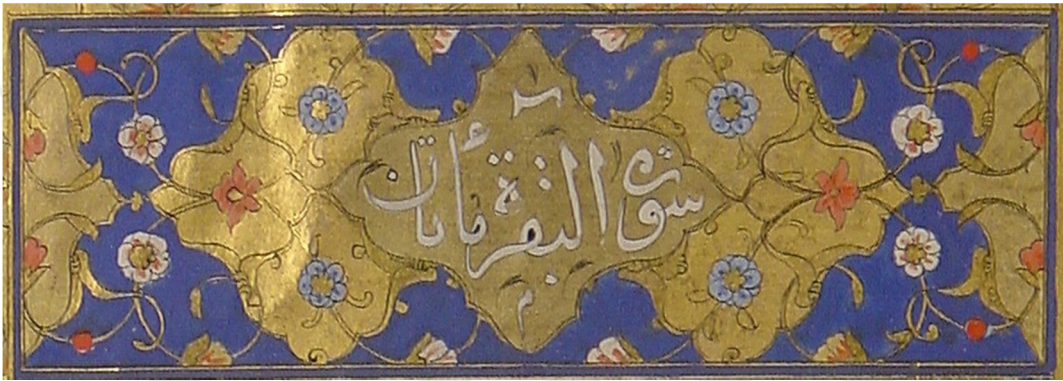 سورة البقرة مأتان